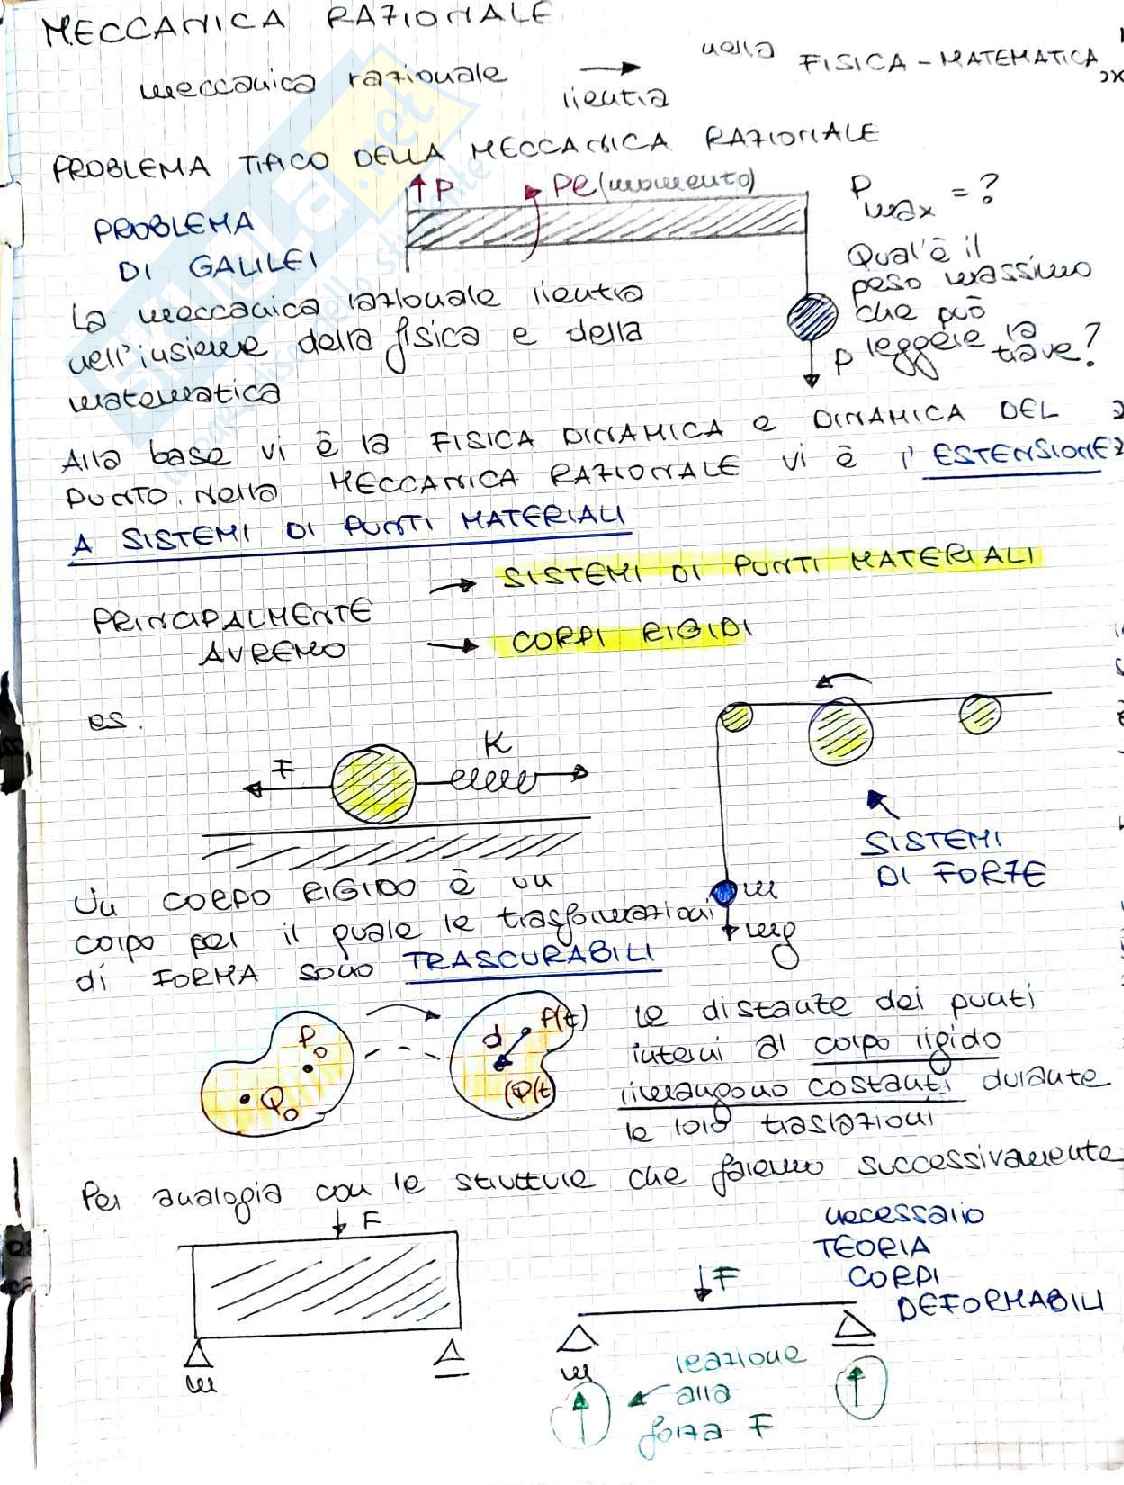 MECCANICA RAZIONALE
meccanica razionale → rientra nella FISICA-MATEMATICA
PROBLEMA TIPICO DELLA MECCANICA RAZIONALE
P
Pl (momento)
Pmax = ?
PROBLEMA
DI GALILEI
Qual'è il
peso massimo
che può
leggere la
trave?
P
La meccanica razionale rientra
nell'insieme della fisica e della
matematica
Alla base vi è la FISICA DINAMICA e DINAMICA DEL
PUNTO. Nella MECCANICA RAZIONALE vi è l'ESTENSIONE
A SISTEMI DI PUNTI MATERIALI
PRINCIPALMENTE
AVREMO
→ SISTEMI DI PUNTI MATERIALI
→ CORPI RIGIDI
es.
F
K
SISTEMI
DI FORZE
m
mg
Un CORPO RIGIDO è un
corpo per il quale le trasformazioni
di FORMA sono TRASCURABILI
P0
Q0
d
P(t)
Q(t)
le distanze dei punti
interni al corpo rigido
rimangono costanti durante
le loro traslazioni
Per analogia con le strutture che faremo successivamente
F
necessario
TEORIA
CORPI
DEFORMABILI
F
reazione
alla
forza F